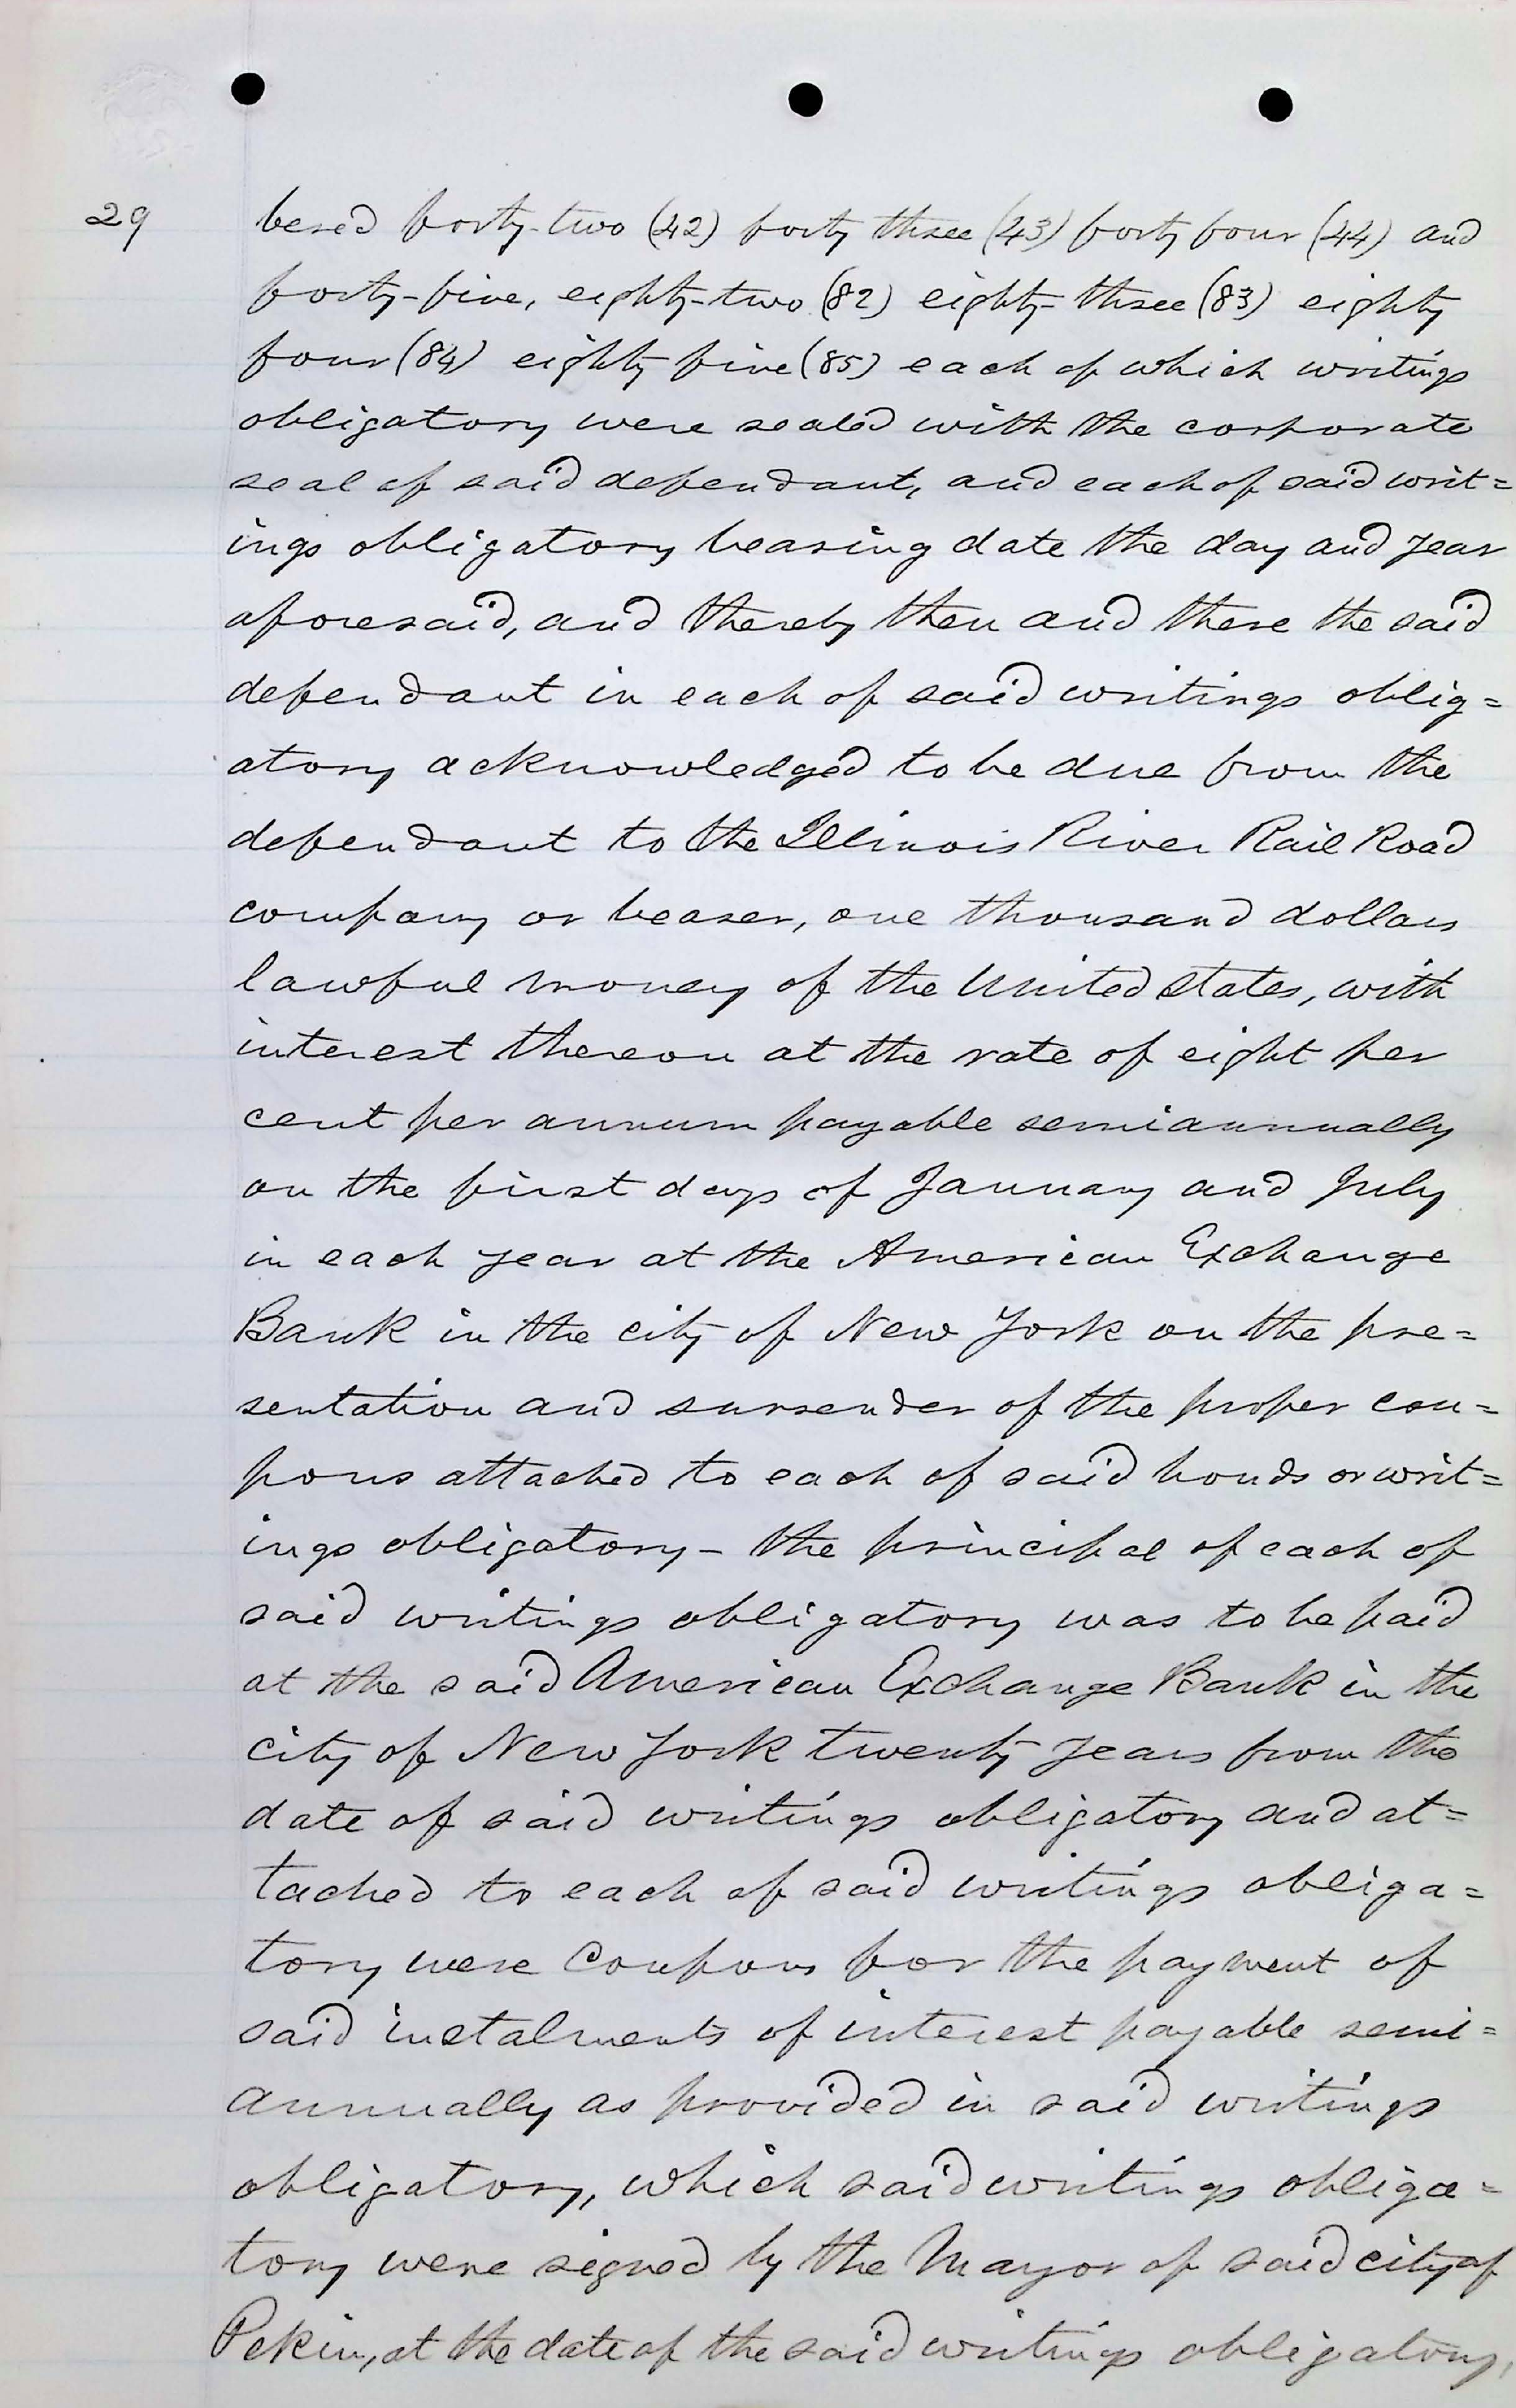 29
bered forty-two (42) forty three (43) forty four (44) and
forty-five, eighty-two (82) eighty-three (83) eighty
four (84) eighty five (85) each of which writings
obligatory were sealed with the corporate
seal of said defendant, and each of said writ=
ings obligatory bearing date the day and year
aforesaid, and thereby then and there the said
defendant in each of said writings oblig=
atory acknowledged to be due from the
defendant to the Illinois River Rail Road
company or bearer, one thousand dollars
lawful money of the United States, with
interest thereon at the rate of eight per
cent per annum payable semiannually
on the first days of January and July
in each year at the American Exchange
Bank in the city of New York on the pre=
sentation and surrender of the proper cou=
pons attached to each of said bonds or writ=
ings obligatory - the principal of each of
said writings obligatory was to be paid
at the said American Exchange Bank in the
city of New York twenty years from the
date of said writings obligatory and at=
tached to each of said writings obliga=
tory were Coupons for the payment of
said instalments of interest payable semi=
annually as provided in said writings
obligatory, which said writings obliga=
tory were signed by the Mayor of said city of
Pekin, at the date of the said writings obligatory,